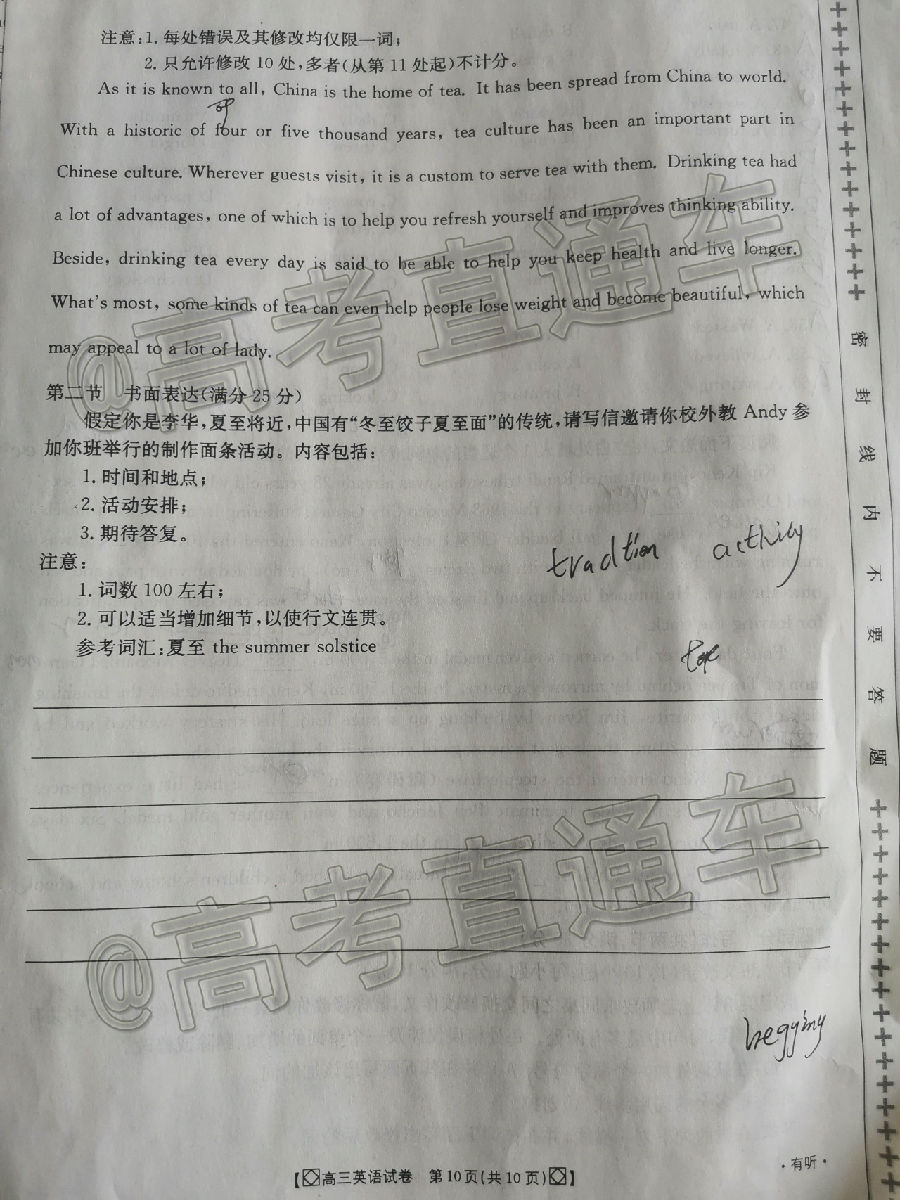 注意:1. 每处错误及其修改均仅限一词;
2. 只允许修改 10 处,多者(从第 11 处起)不计分。
As it is known to all, China is the home of tea. It has been spread from China to world.
of
With a historic of four or five thousand years, tea culture has been an important part in
Chinese culture. Wherever guests visit, it is a custom to serve tea with them. Drinking tea had
a lot of advantages, one of which is to help you refresh yourself and improves thinking ability.
Beside, drinking tea every day is said to be able to help you keep health and live longer.
What's most, some kinds of tea can even help people lose weight and become beautiful, which
may appeal to a lot of lady.
第二节 书面表达(满分 25 分)
假定你是李华,夏至将近,中国有“冬至饺子夏至面”的传统,请写信邀请你校外教 Andy 参
加你班举行的制作面条活动。内容包括:
1. 时间和地点;
2. 活动安排;
3. 期待答复。
注意:
1. 词数 100 左右;
2. 可以适当增加细节,以使行文连贯。
参考词汇:夏至 the summer solstice
tradtion activity
@高考直通车
@高考直通车
密封线内不要答题
·有听·
【高三英语试卷 第 10 页(共 10 页)】